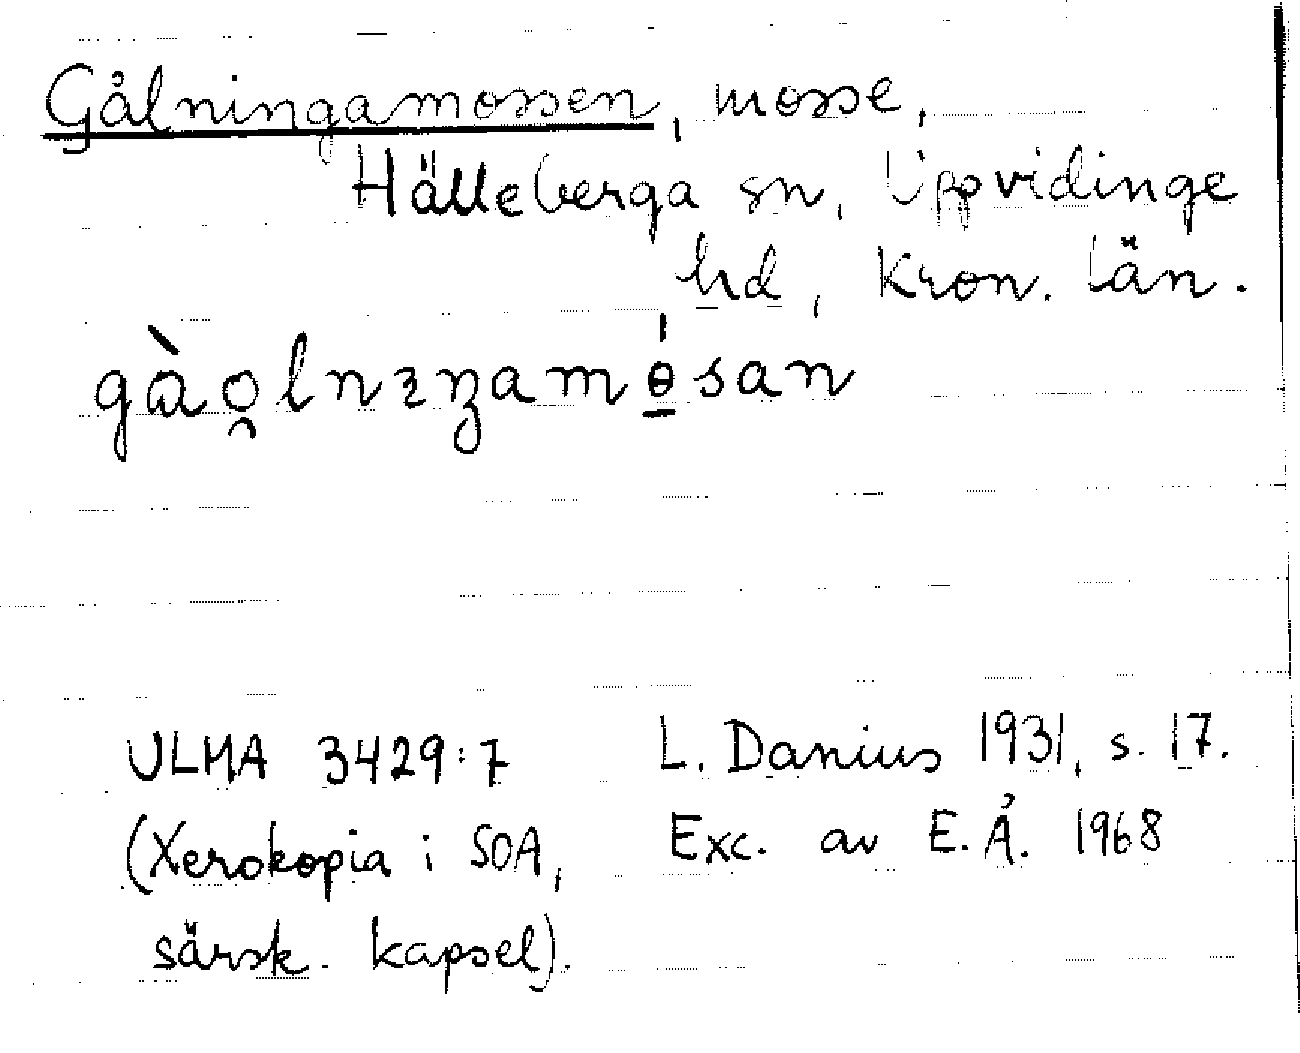 Gålningamossen, mosse,
Hälleberga sn, Uppvidinge
hd, Kron. län.
gào̯lnɿŋamө́san
ULMA 3429:7 L. Danius 1931, s. 17.
(Xerokopia i SOA, Exc. av E.Å. 1968
särsk. kapsel).